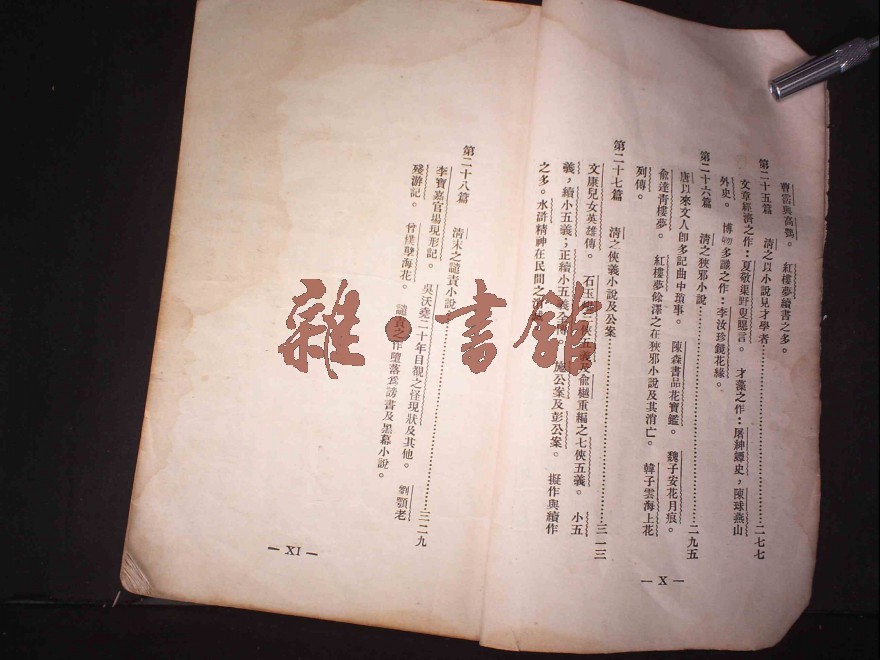 曹霑與高鶚。　紅樓夢續書之多。
第二十五篇　清之以小說見才學者……………二七七
文章經濟之作：夏敬渠野叟曝言。　才藻之作：屠紳蟫史，陳球燕山
外史。　博物多識之作：李汝珍鏡花緣。
第二十六篇　清之狹邪小說……………二九五
唐以來文人即多記曲中瑣事。　陳森書品花寶鑑。　魏子安花月痕。
俞達青樓夢。　紅樓夢餘澤之在狹邪小說及其消亡。　韓子雲海上花
列傳。
第二十七篇　清之俠義小說及公案……………三一三
文康兒女英雄傳。　石玉　俠五義及俞樾重編之七俠五義。　小五
義，續小五義；正續小五義全　施公案及彭公案。　擬作與續作
之多。水滸精神在民間之消
— X —
第二十八篇　清末之譴責小說……………三二九
李寶嘉官場現形記。　吳沃堯二十年目覩之怪現狀及其他。　劉鶚老
殘游記。　曾樸孽海花。　譴責之作墮落爲謗書及黑幕小說。
— XI —
雜·書館